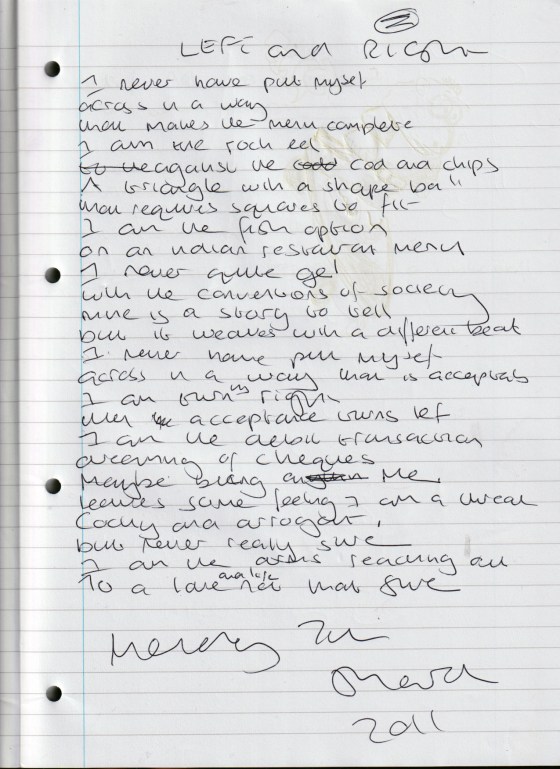 2
LEFT and RIGHT
I never have put myself
across in a way
that makes the menu complete
I am the rock eel
to the against the codd cod and chips
A triangle with a shape ball
that requires squares to fit
I am the fish option
on an indian restaurant menu
I never quite gel
with the conventions of society
mine is a story to tell
but it weaves with a different beat
I never have put myself
across in a way that is acceptable
I am turning right
when the acceptance turns left
I am the debit transaction
dreaming of cheques
Maybe being me
leaves some feeling I am a threat
Cocky and arrogant,
but never really sure
I am the arms reaching out
To a love and life not that sure
2011